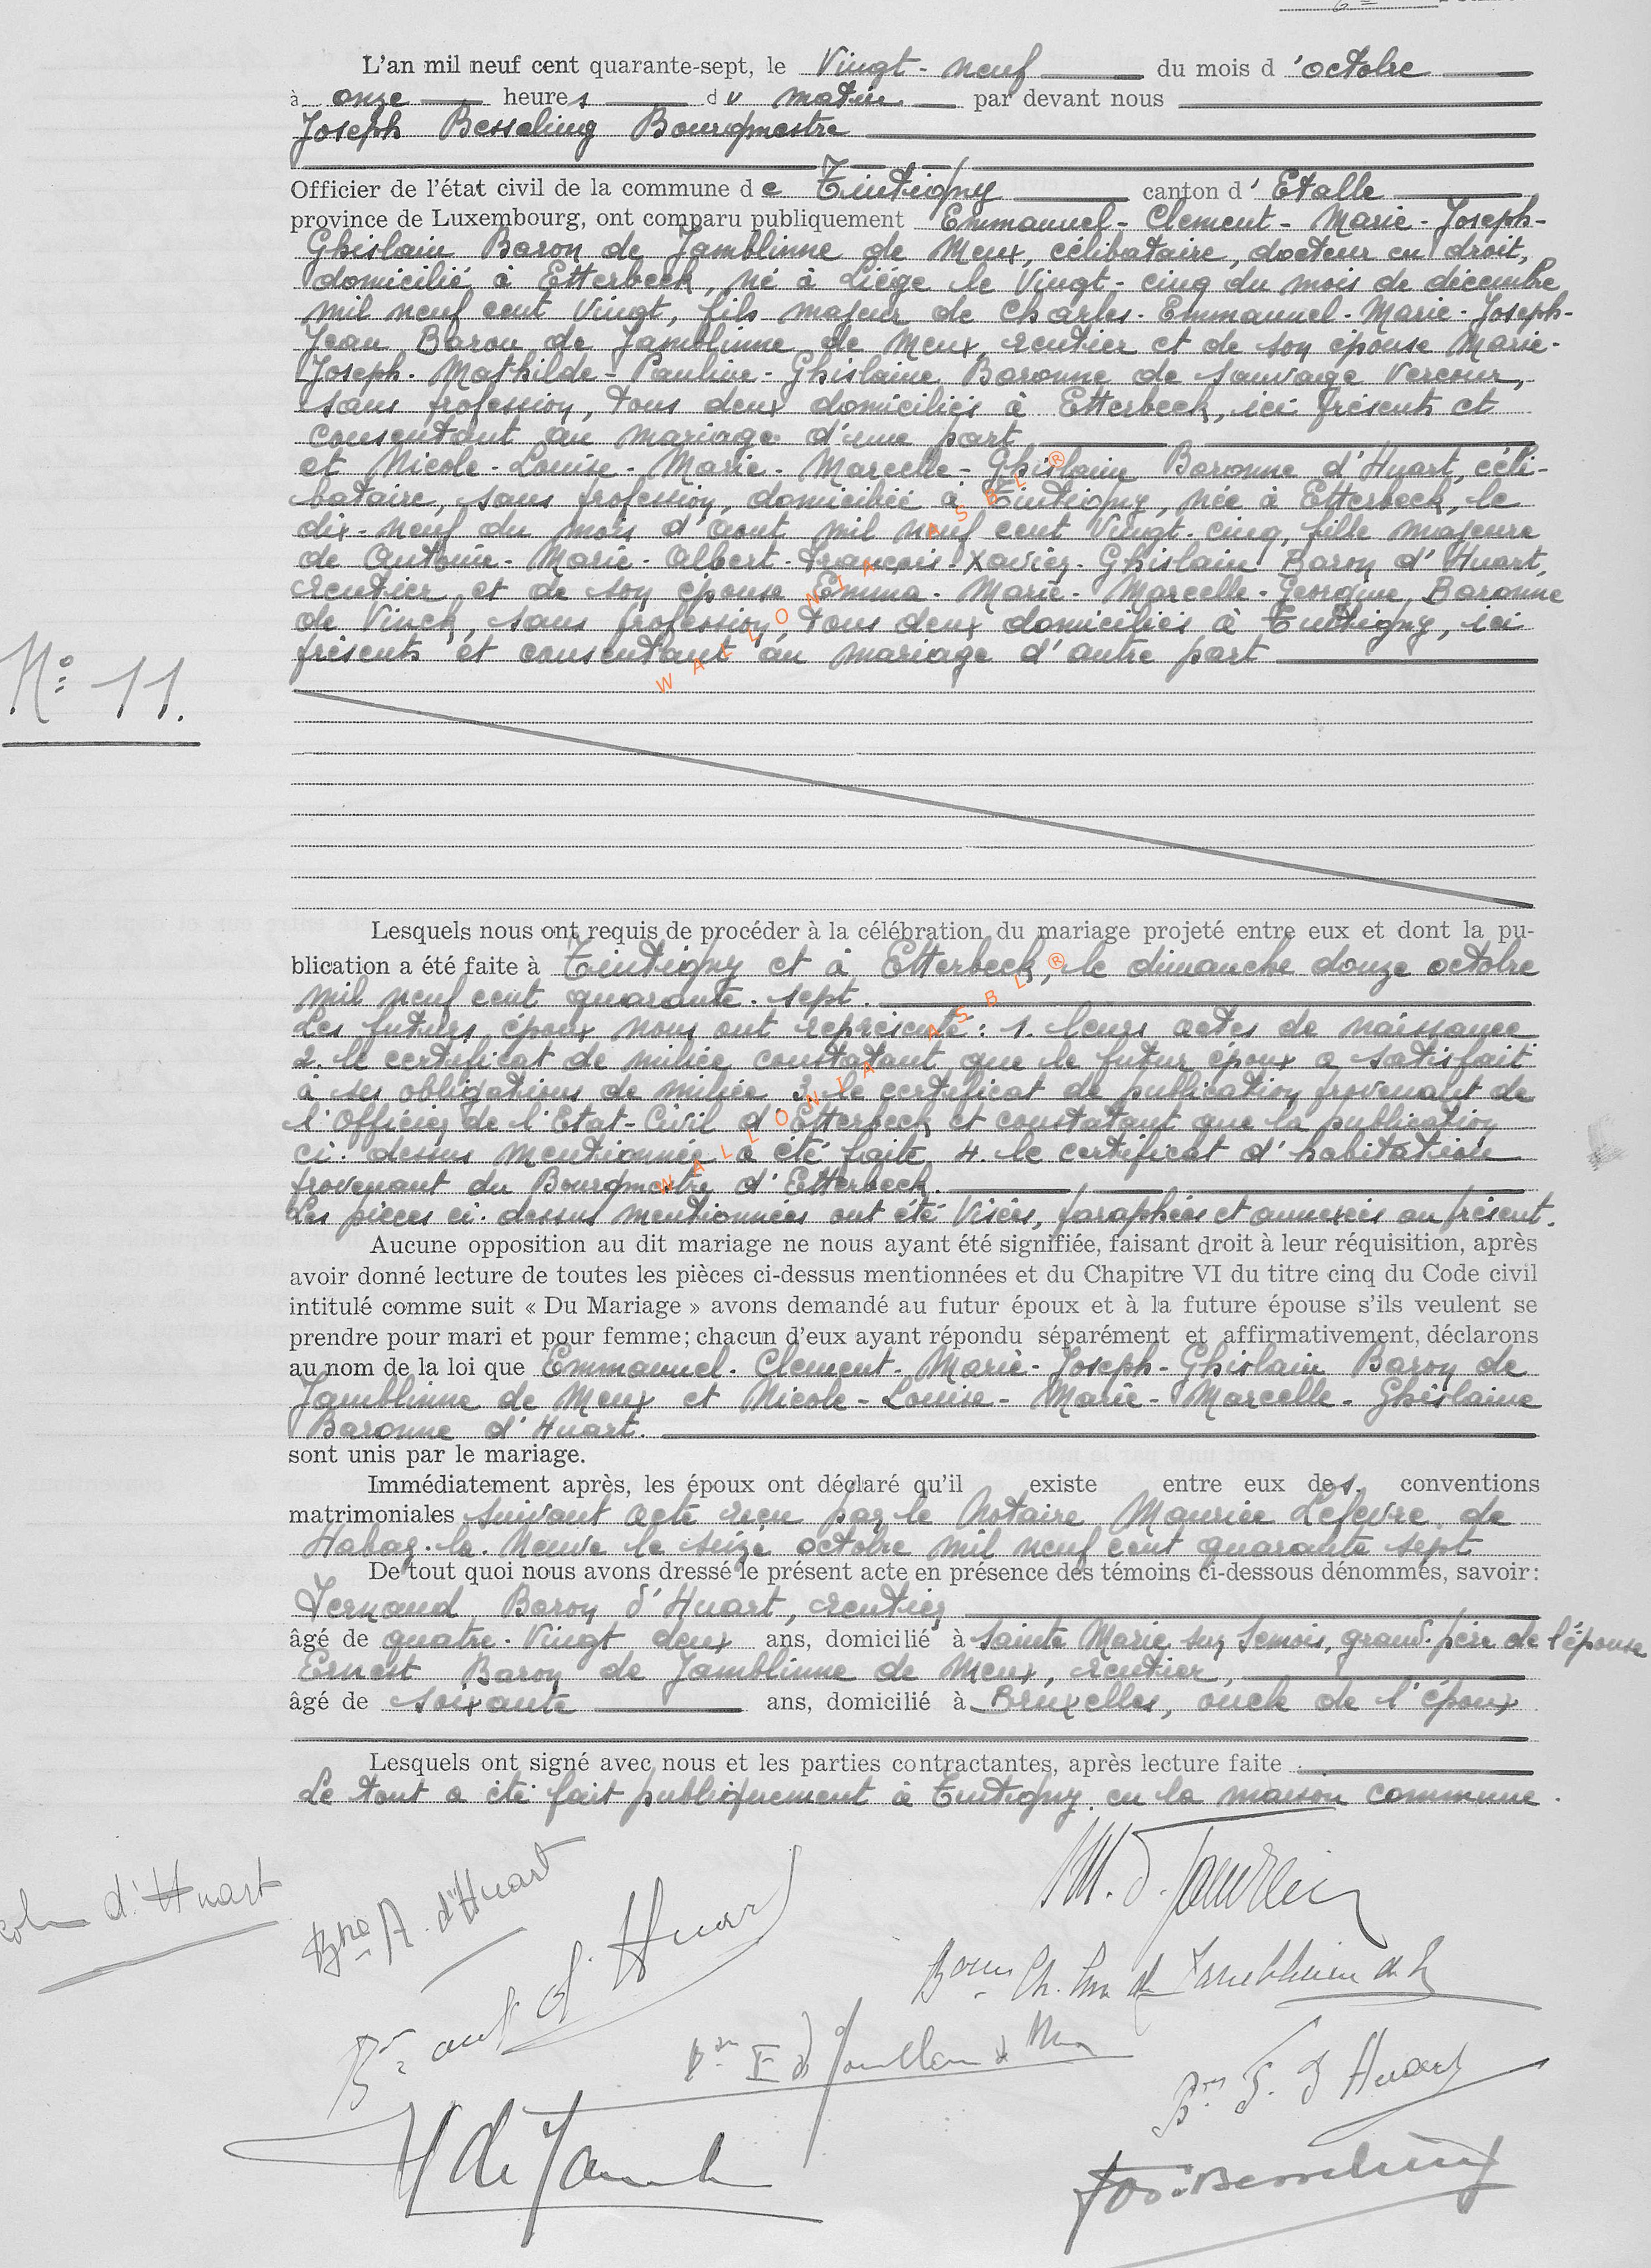 L'an mil neuf cent quarante-sept, le Vingt-neuf du mois d'octobre
à onze heures du matin par devant nous
Joseph Besseling Bourgmestre
Officier de l'état civil de la commune de Tintigny canton d'Etalle
province de Luxembourg, ont comparu publiquement Emmanuel-Clement-Marie-Joseph-
Ghislain Baron de Jamblinne de Meux, célibataire, docteur en droit,
domicilié à Etterbeek, né à Liége le Vingt-cinq du mois de décembre
mil neuf cent Vingt, fils majeur de Charles-Emmanuel-Marie-Joseph-
Jean Baron de Jamblinne de Meux, rentier et de son épouse Marie-
Joseph-Mathilde-Pauline-Ghislaine Baronne de Sauvage Vercour,
sans profession, tous deux domiciliés à Etterbeek, ici présents et
consentant au mariage d'une part
et Nicole-Louise-Marie-Marcelle-Ghislaine Baronne d'Huart, céli-
bataire, sans profession, domiciliée à Tintigny, née à Etterbeek, le
dix-neuf du mois d'aout mil neuf cent Vingt-cinq, fille majeure
de Antoine-Marie-Albert-François-Xavier-Ghislain Baron d'Huart,
rentier et de son épouse Emma-Marie-Marcelle-Georgine Baronne
de Vinck, sans profession, tous deux domiciliés à Tintigny, ici
présents et consentant au mariage d'autre part
N° 11.
Lesquels nous ont requis de procéder à la célébration du mariage projeté entre eux et dont la pu-
blication a été faite à Tintigny et à Etterbeek, le dimanche douze octobre
mil neuf cent quarante-sept.
Les futurs époux nous ont représenté: 1. leurs actes de naissance
2. le certificat de milice constatant que le futur époux a satisfait
à ses obligations de milice 3. le certificat de publication provenant de
l'Officier de l'Etat-Civil d'Etterbeek et constatant que la publication
ci-dessus mentionnée a été faite 4. le certificat d'habitation
provenant du Bourgmestre d'Etterbeek.
Les pièces ci-dessus mentionnées ont été Visées, paraphées et annexées au présent.
Aucune opposition au dit mariage ne nous ayant été signifiée, faisant droit à leur réquisition, après
avoir donné lecture de toutes les pièces ci-dessus mentionnées et du Chapitre VI du titre cinq du Code civil
intitulé comme suit « Du Mariage » avons demandé au futur époux et à la future épouse s'ils veulent se
prendre pour mari et pour femme; chacun d'eux ayant répondu séparément et affirmativement, déclarons
au nom de la loi que Emmanuel-Clement-Marie-Joseph-Ghislain Baron de
Jamblinne de Meux et Nicole-Louise-Marie-Marcelle-Ghislaine
Baronne d'Huart.
sont unis par le mariage.
Immédiatement après, les époux ont déclaré qu'il existe entre eux des conventions
matrimoniales suivant acte reçu par le Notaire Maurice Lefevre de
Habay-la-Neuve le seize octobre mil neuf cent quarante sept
De tout quoi nous avons dressé le présent acte en présence des témoins ci-dessous dénommés, savoir:
Fernand Baron d'Huart, rentier
âgé de quatre-Vingt deux ans, domicilié à Sainte Marie sur Semois, grand-père de l'épouse
Ernest Baron de Jamblinne de Meux, rentier,
âgé de soixante ans, domicilié à Bruxelles, oncle de l'époux
Lesquels ont signé avec nous et les parties contractantes, après lecture faite.
Le tout a été fait publiquement à Tintigny en la maison commune.
d'Huart
Bne A. d'Huart
Bn ant d'Huart
Bon F. d'Huart
Jos. Besseling
WALLONIA ASBL ®
WALLONIA ASBL ®